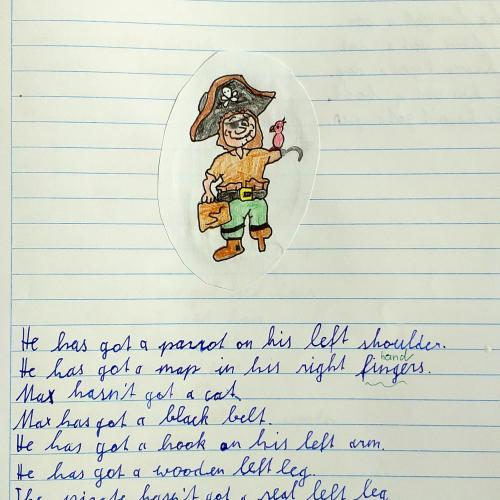 He has got a parrot on his left shoulder.
hand
He has got a map in his right fingers.
Max hasn't got a cat.
Max has got a black belt.
He has got a hook on his left arm.
He has got a wooden left leg.
The pirate hasn't got a real left leg